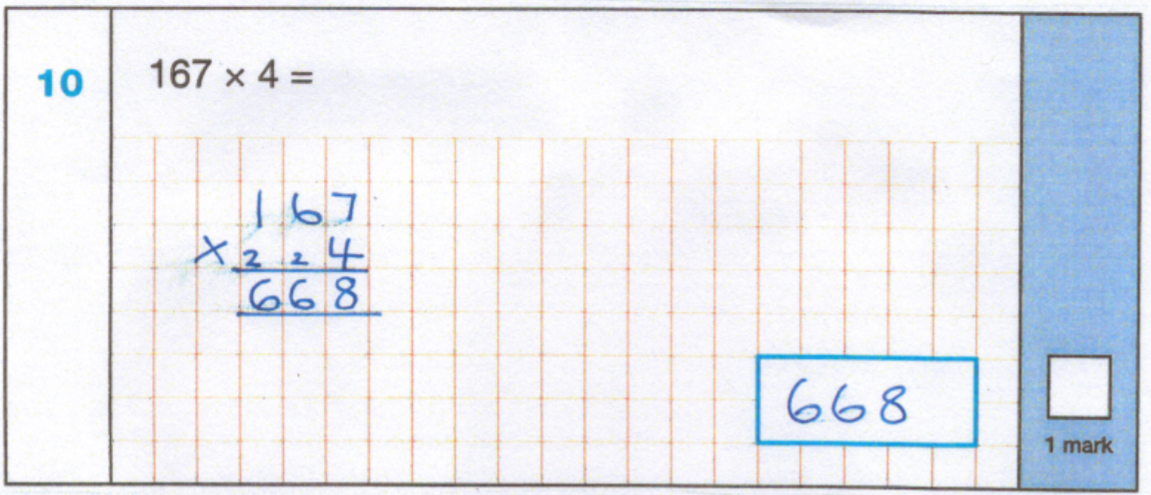 10 167 × 4 =
167
× 2 2 4
668
668
1 mark